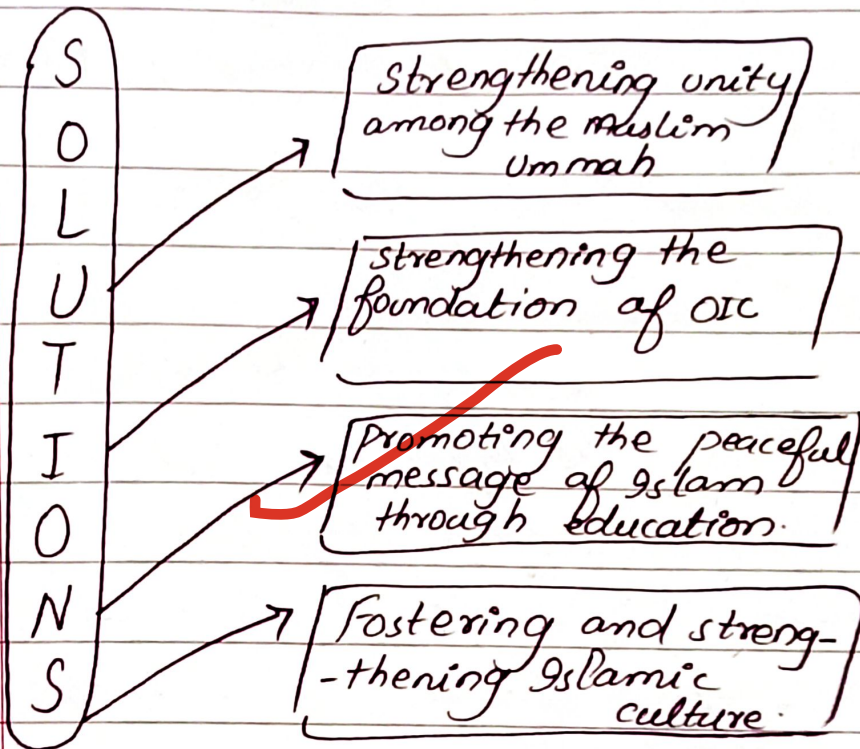 SOLUTIONS
Strengthening unity
among the Muslim
Ummah
strengthening the
foundation of OIC
Promoting the peaceful
message of Islam
through education.
Fostering and streng-
-thening Islamic
culture.